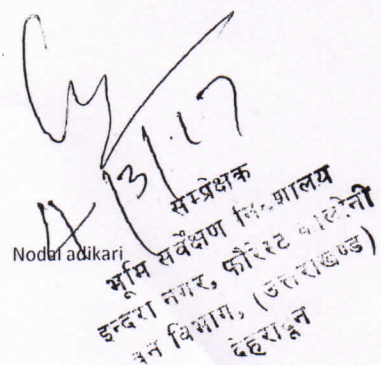 13/1/17
Nodal adikari
सम्प्रेक्षक
भूमि सर्वेक्षण निदेशालय
इन्दिरा नगर, फौरेस्ट कालोनी
वन विभाग, (उत्तराखण्ड)
देहरादून